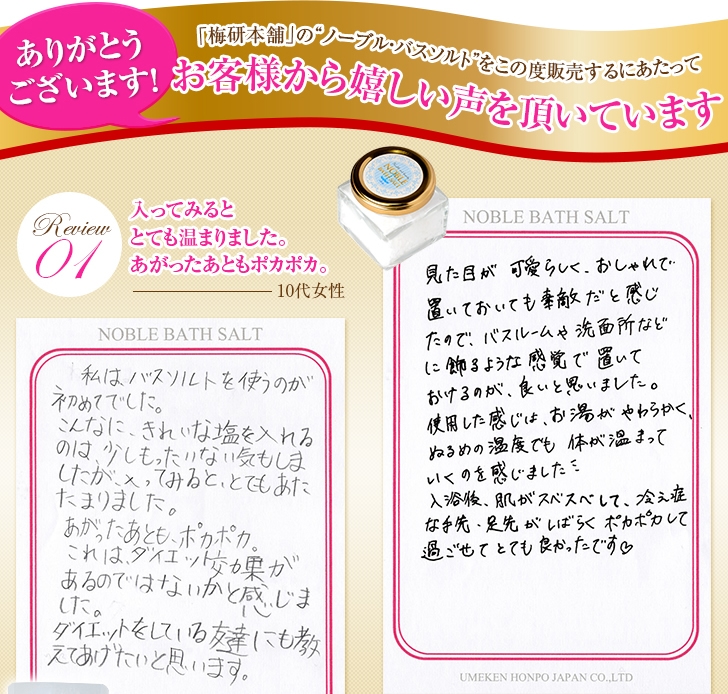 ありがとう
ございます!
「梅研本舗」の“ノーブル・バスソルト”をこの度販売するにあたって
お客様から嬉しい声を頂いています
Review
01
入ってみると
とても温まりました。
あがったあともポカポカ。
10代女性
NOBLE
NOBLE BATH SALT
私はバスソルトを使うのが
初めてでした。
こんなに、きれいな塩を入れる
のは、少しもったいない気もしま
したが、入ってみると、とてもあた
たまりました。
あがったあとも、ポカポカ。
これは、ダイエット効果が
あるのではないかと感じま
した。
ダイエットをしている友達にも教
えてあげたいと思います。
NOBLE BATH SALT
見た目が 可愛らしく、おしゃれで
置いておいても素敵だと感じ
たので、バスルームや洗面所など
に飾るような感覚で置いて
おけるのが、良いと思いました。
使用した感じは、お湯がやわらかく、
ぬるめの温度でも 体が温まって
いくのを感じました
入浴後、肌がスベスベして、冷え症
な手先・足先がしばらくポカポカして
過ごせてとても良かったです♡
UMEKEN HONPO JAPAN CO.,LTD